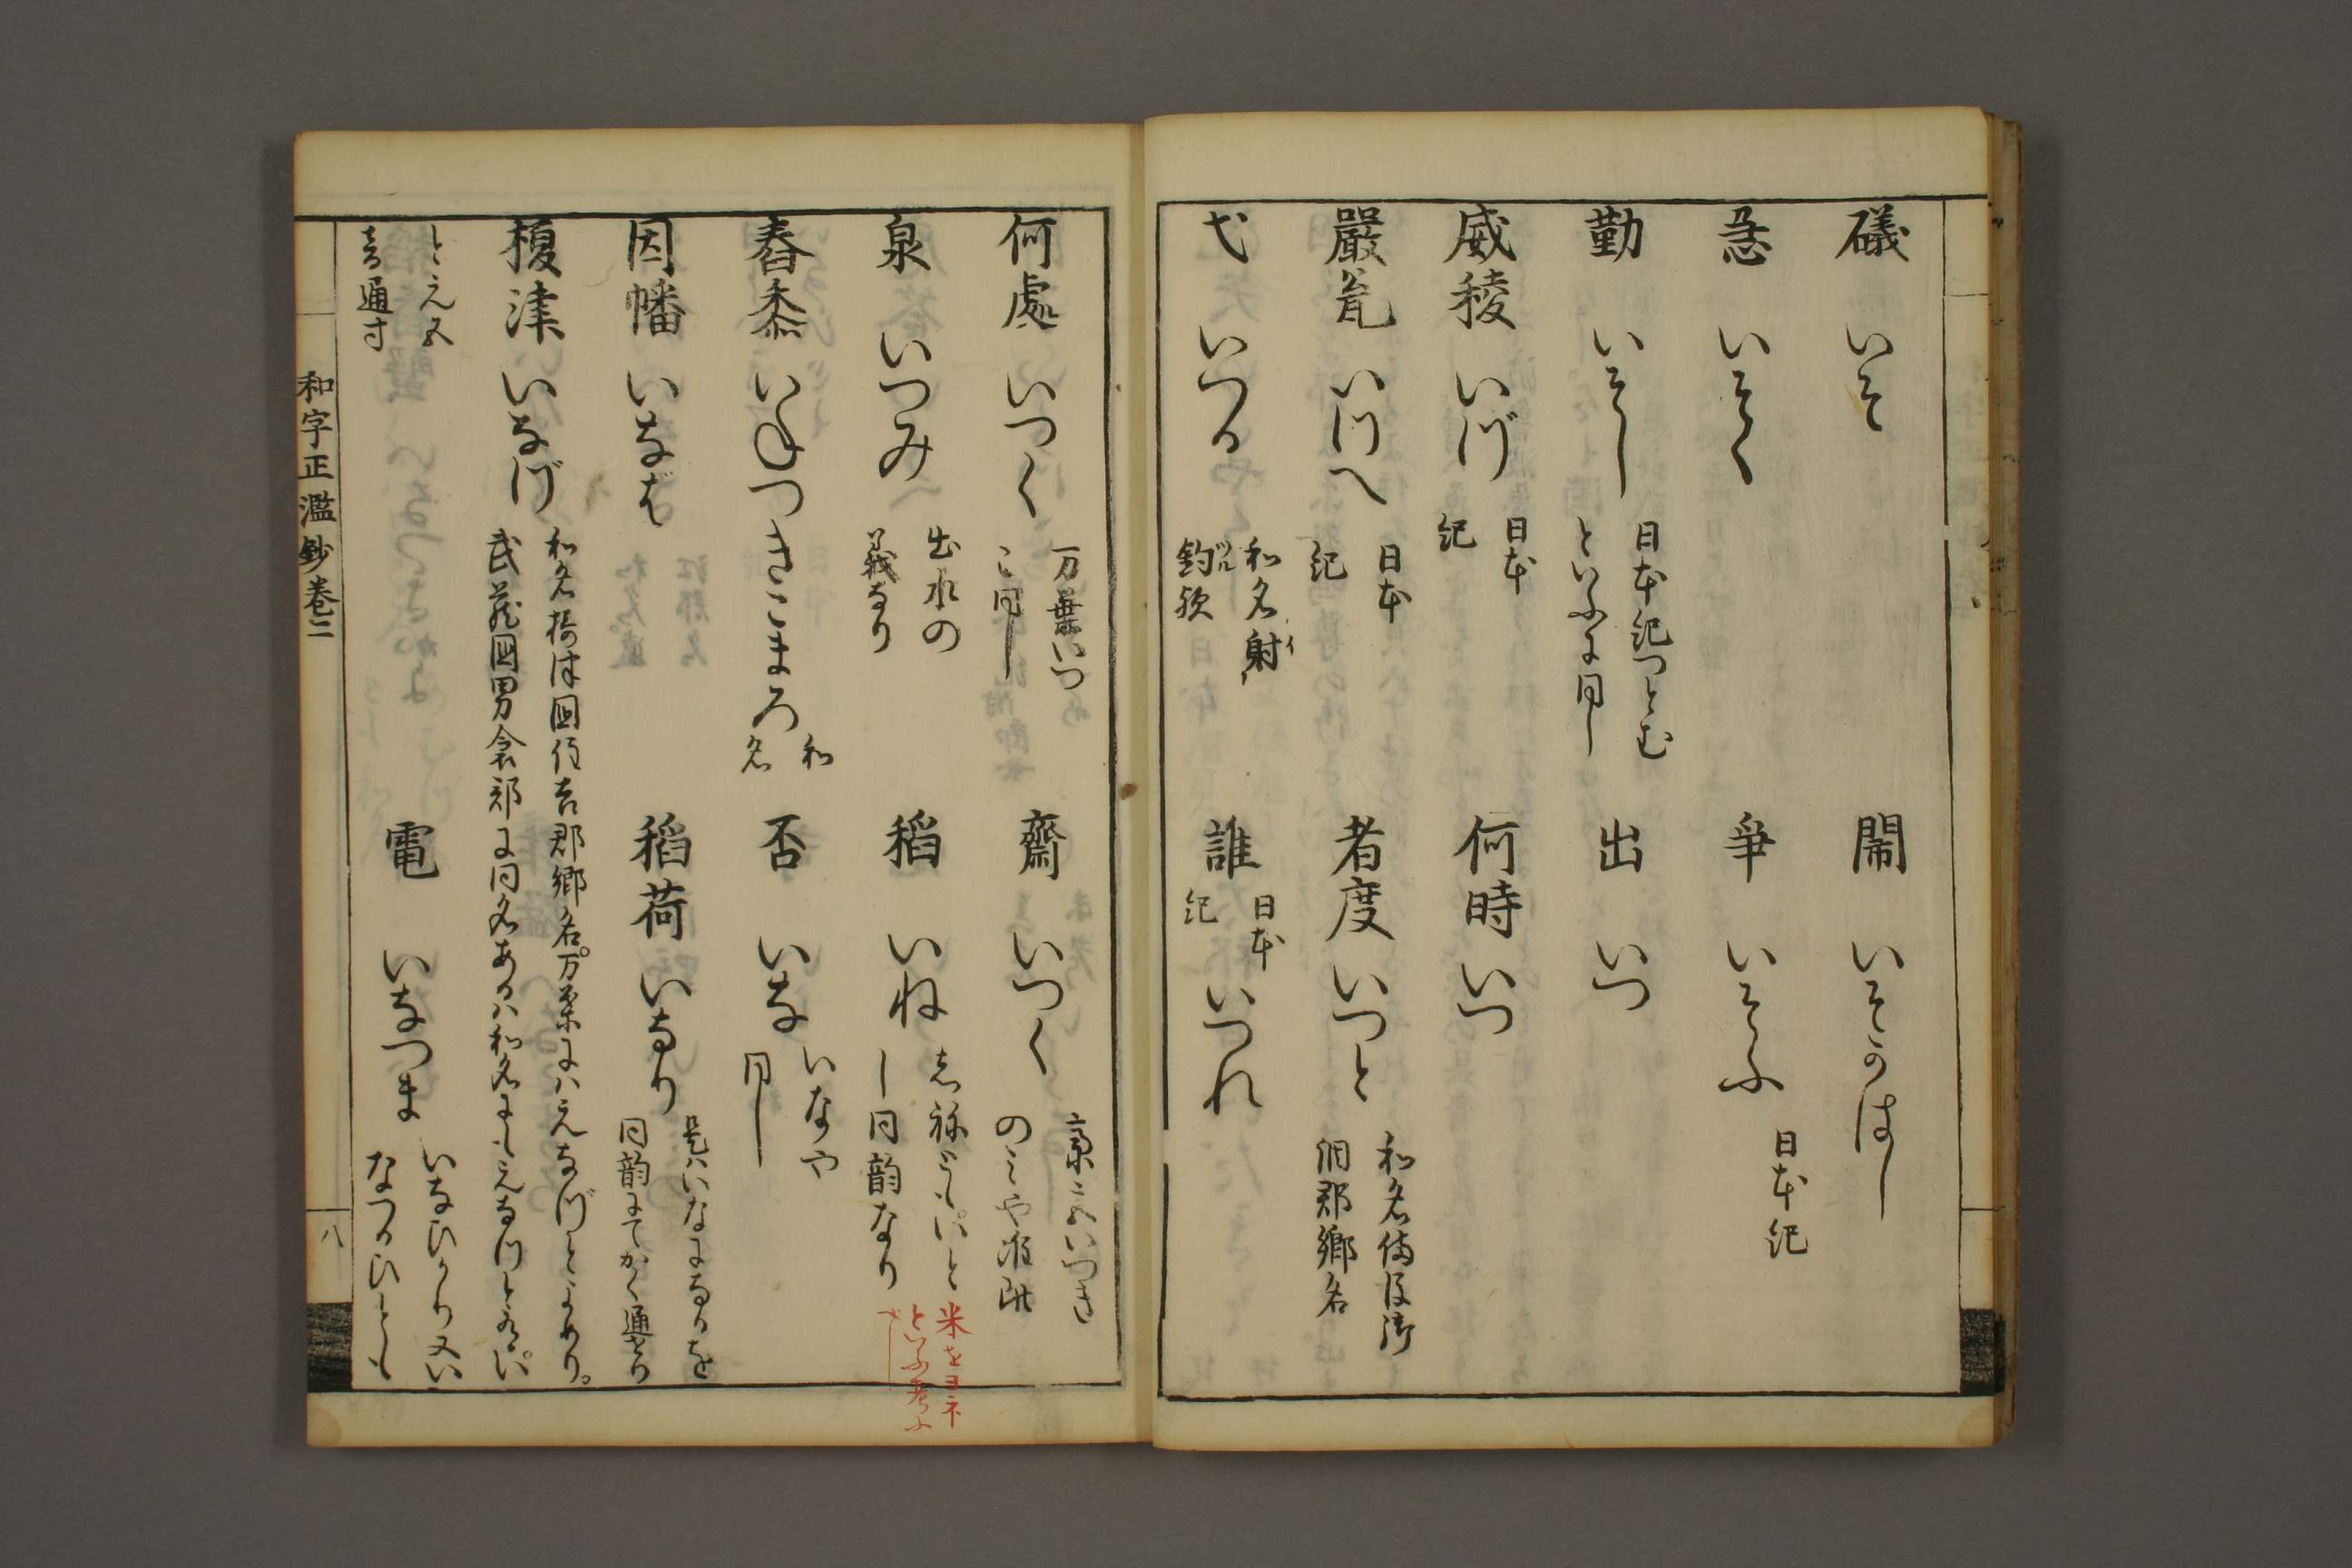 礒 いそ
閙 いそかはし
急 いそく
爭 いそふ 日本紀
勤 いそし 日本紀つとむ
といふに同し
出 いつ
威稜 いづ 日本
紀
何時 いつ
嚴瓮 いづへ 日本
紀
者度 いつと 和名備後御
調郡郷名
弋 いつる 和名射
誰 日本
紀 いつれ
何處 いつく 万葉いつ
こ同し
齋 いつく
泉 いつみ 出水の
義なり
稻 いね
し同韵なり
米をヨネ
といふ考ふ
べし
舂黍 いねつきこまろ 和
名
否 いな いなや
同し
因幡 いなば
稻荷 いなり 是ハいなになるを
同韵にてかく通せり
榎津 いなづ 和名攝津國住吉郡郷名。万葉にハえなづとよめり。
武蔵國男衾郡に同名あるハ和名にもえなつと有。い
とえ五
音通す
電 いなつま いなひかり又い
なつるひとも
和字正濫鈔卷二
八